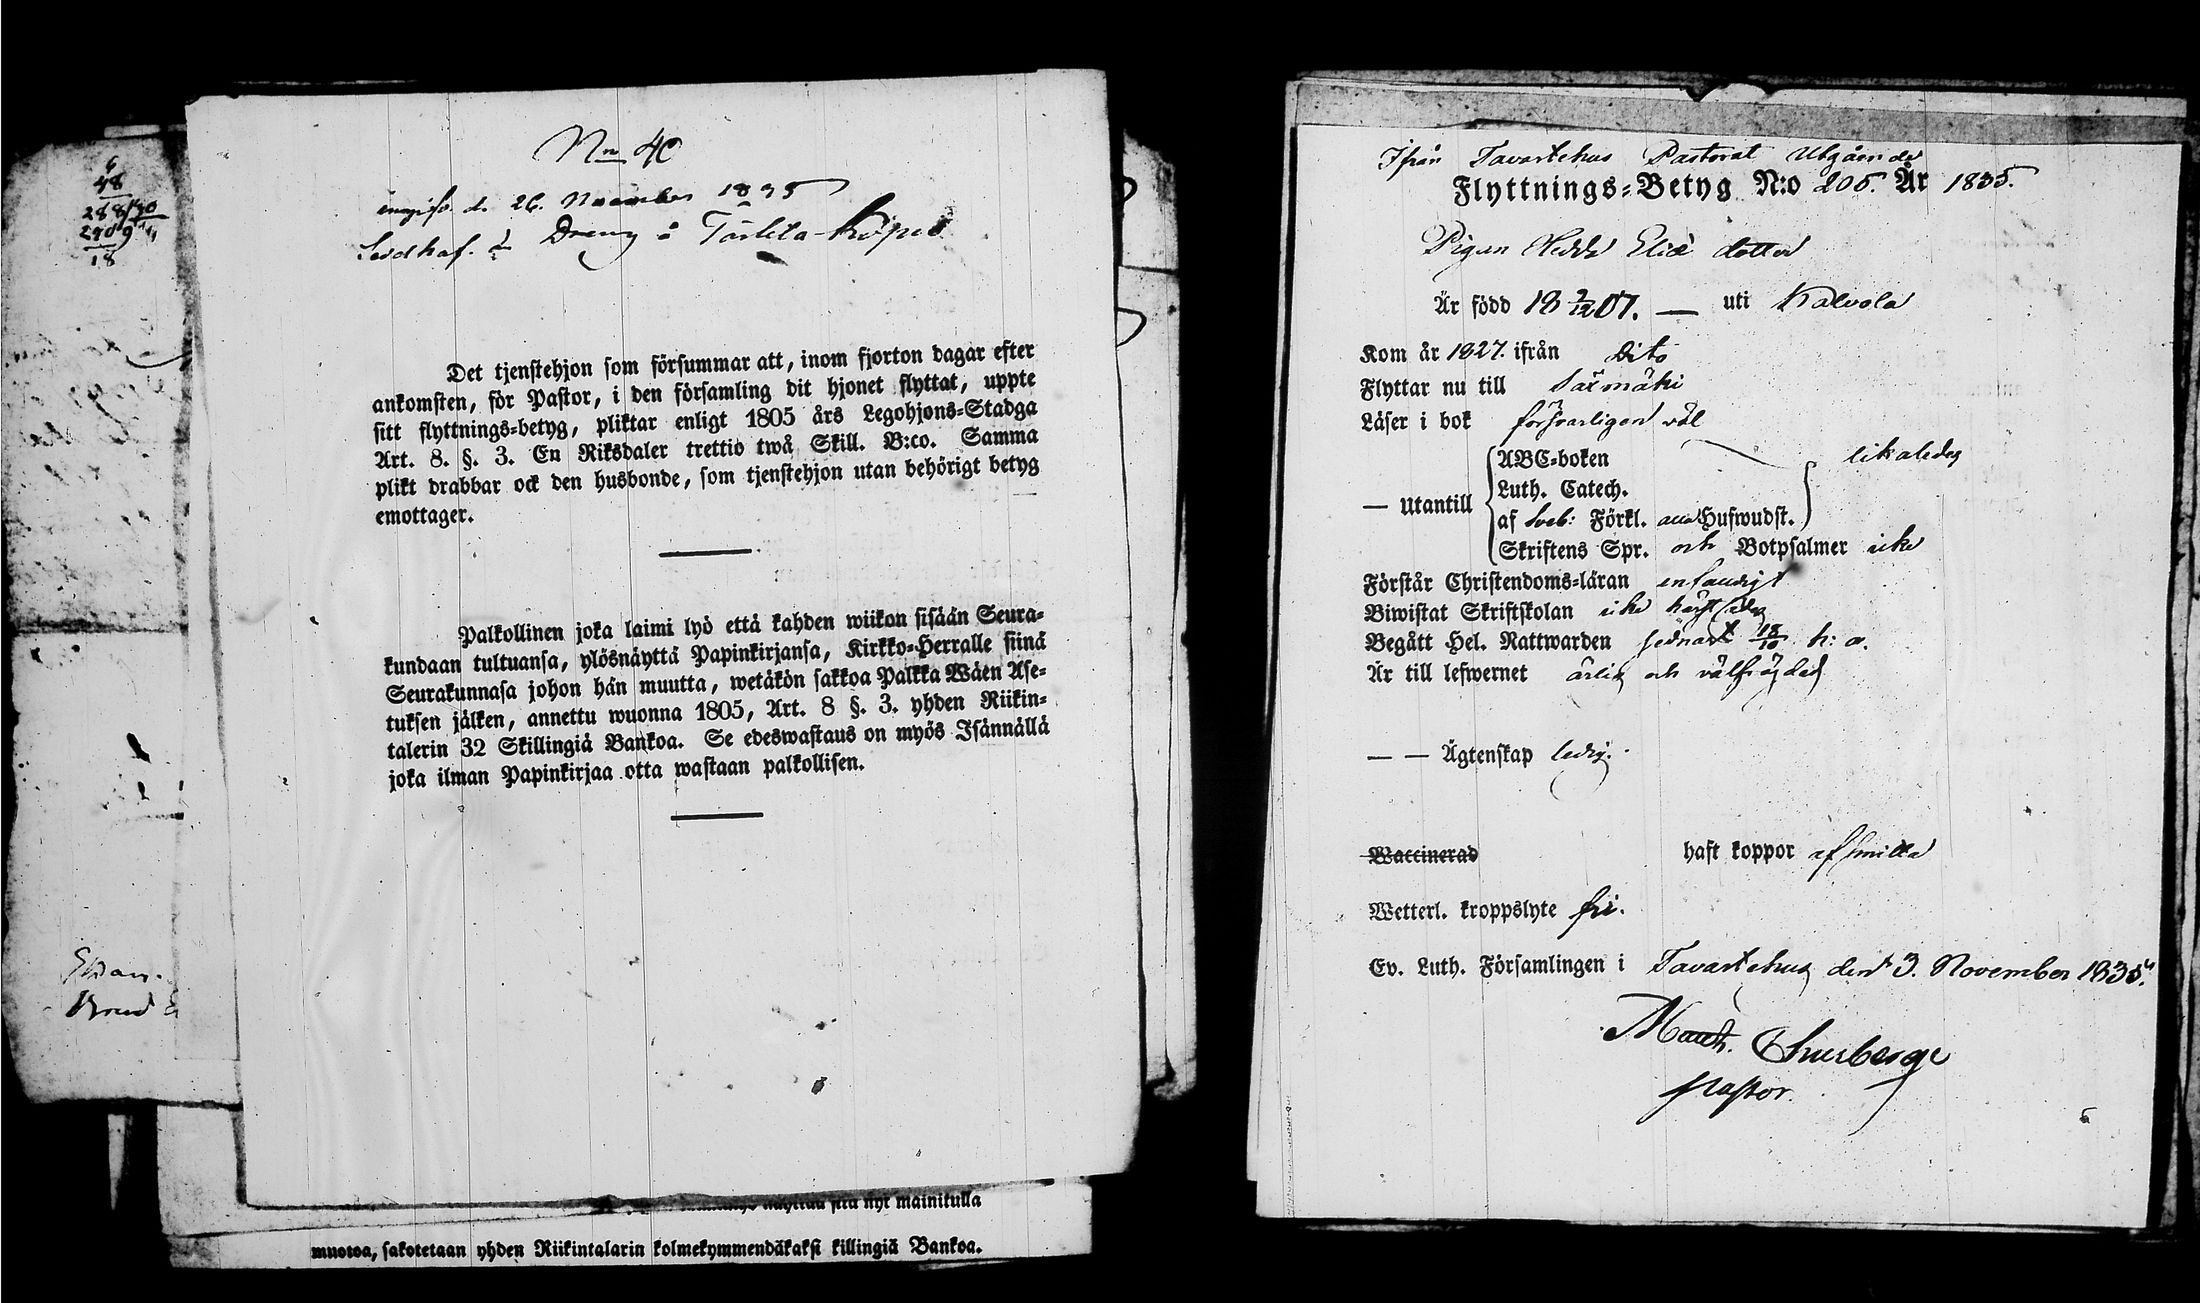 6
48
288
18
Nro 40
d. 26. November 1835
Det tjenstehjon som försummar att, inom fjorton dagar efter
ankomsten, för Pastor, i den församling dit hjonet flyttat, uppte
sitt flyttnings=betyg, pliktar enligt 1805 års Legohjons=Stadga
Art. 8. §. 3. En Riksdaler trettio twå Skill. B:co. Samma
plikt drabbar ock den husbonde, som tjenstehjon utan behörigt betyg
emottager.
Palkollinen joka laimi lyö että kahden wiikon sisään Seura=
kundaan tultuansa, ylösnäyttä Papinkirjansa, Kirkko=Herralle siinä
Seurakunnasa johon hän muutta, wetäkön sakkoa Palkka Wäen Ase=
tuksen jälken, annettu wuonna 1805, Art. 8 §. 3. yhden Riikin=
talerin 32 Skillingiä Bankoa. Se edeswastaus on myös Isännällä
joka ilman Papinkirjaa otta wastaan palkollisen.
mainitulla
muotoa, sakotetaan yhden Riikintalarin kolmekymmendäkaksi killingiä Bankoa.
Ifrån Tavastehus Pastorat Utgående
Flyttnings=Betyg N:o 205. År 1835.
Pigan Hedda Eliæ dotter
Är född 18 2/12 07. — uti Kalvola
Kom år 1827. ifrån Dito
Flyttar nu till Särmäki
Läser i bok försvarligen väl
ABC=boken likaledes
Luth. Catech.
— Utantill
af Sveb: Förkl. Hufwudst.
Skriftens Spr. och Botpsalmer icke
Förstår Christendoms=läran enfaldigt
Biwistat Skriftskolan icke härstädes
Begått Hel. Nattwarden sednast 18/10 h: a.
Är till lefwernet ärlig och välfrägdad
— — Ägtenskap ledig.
Waccinerad haft koppor
Wetterl. kroppslyte fri.
Ev. Luth. Församlingen i Tavastehus den 3. November 1835.
Pastor.